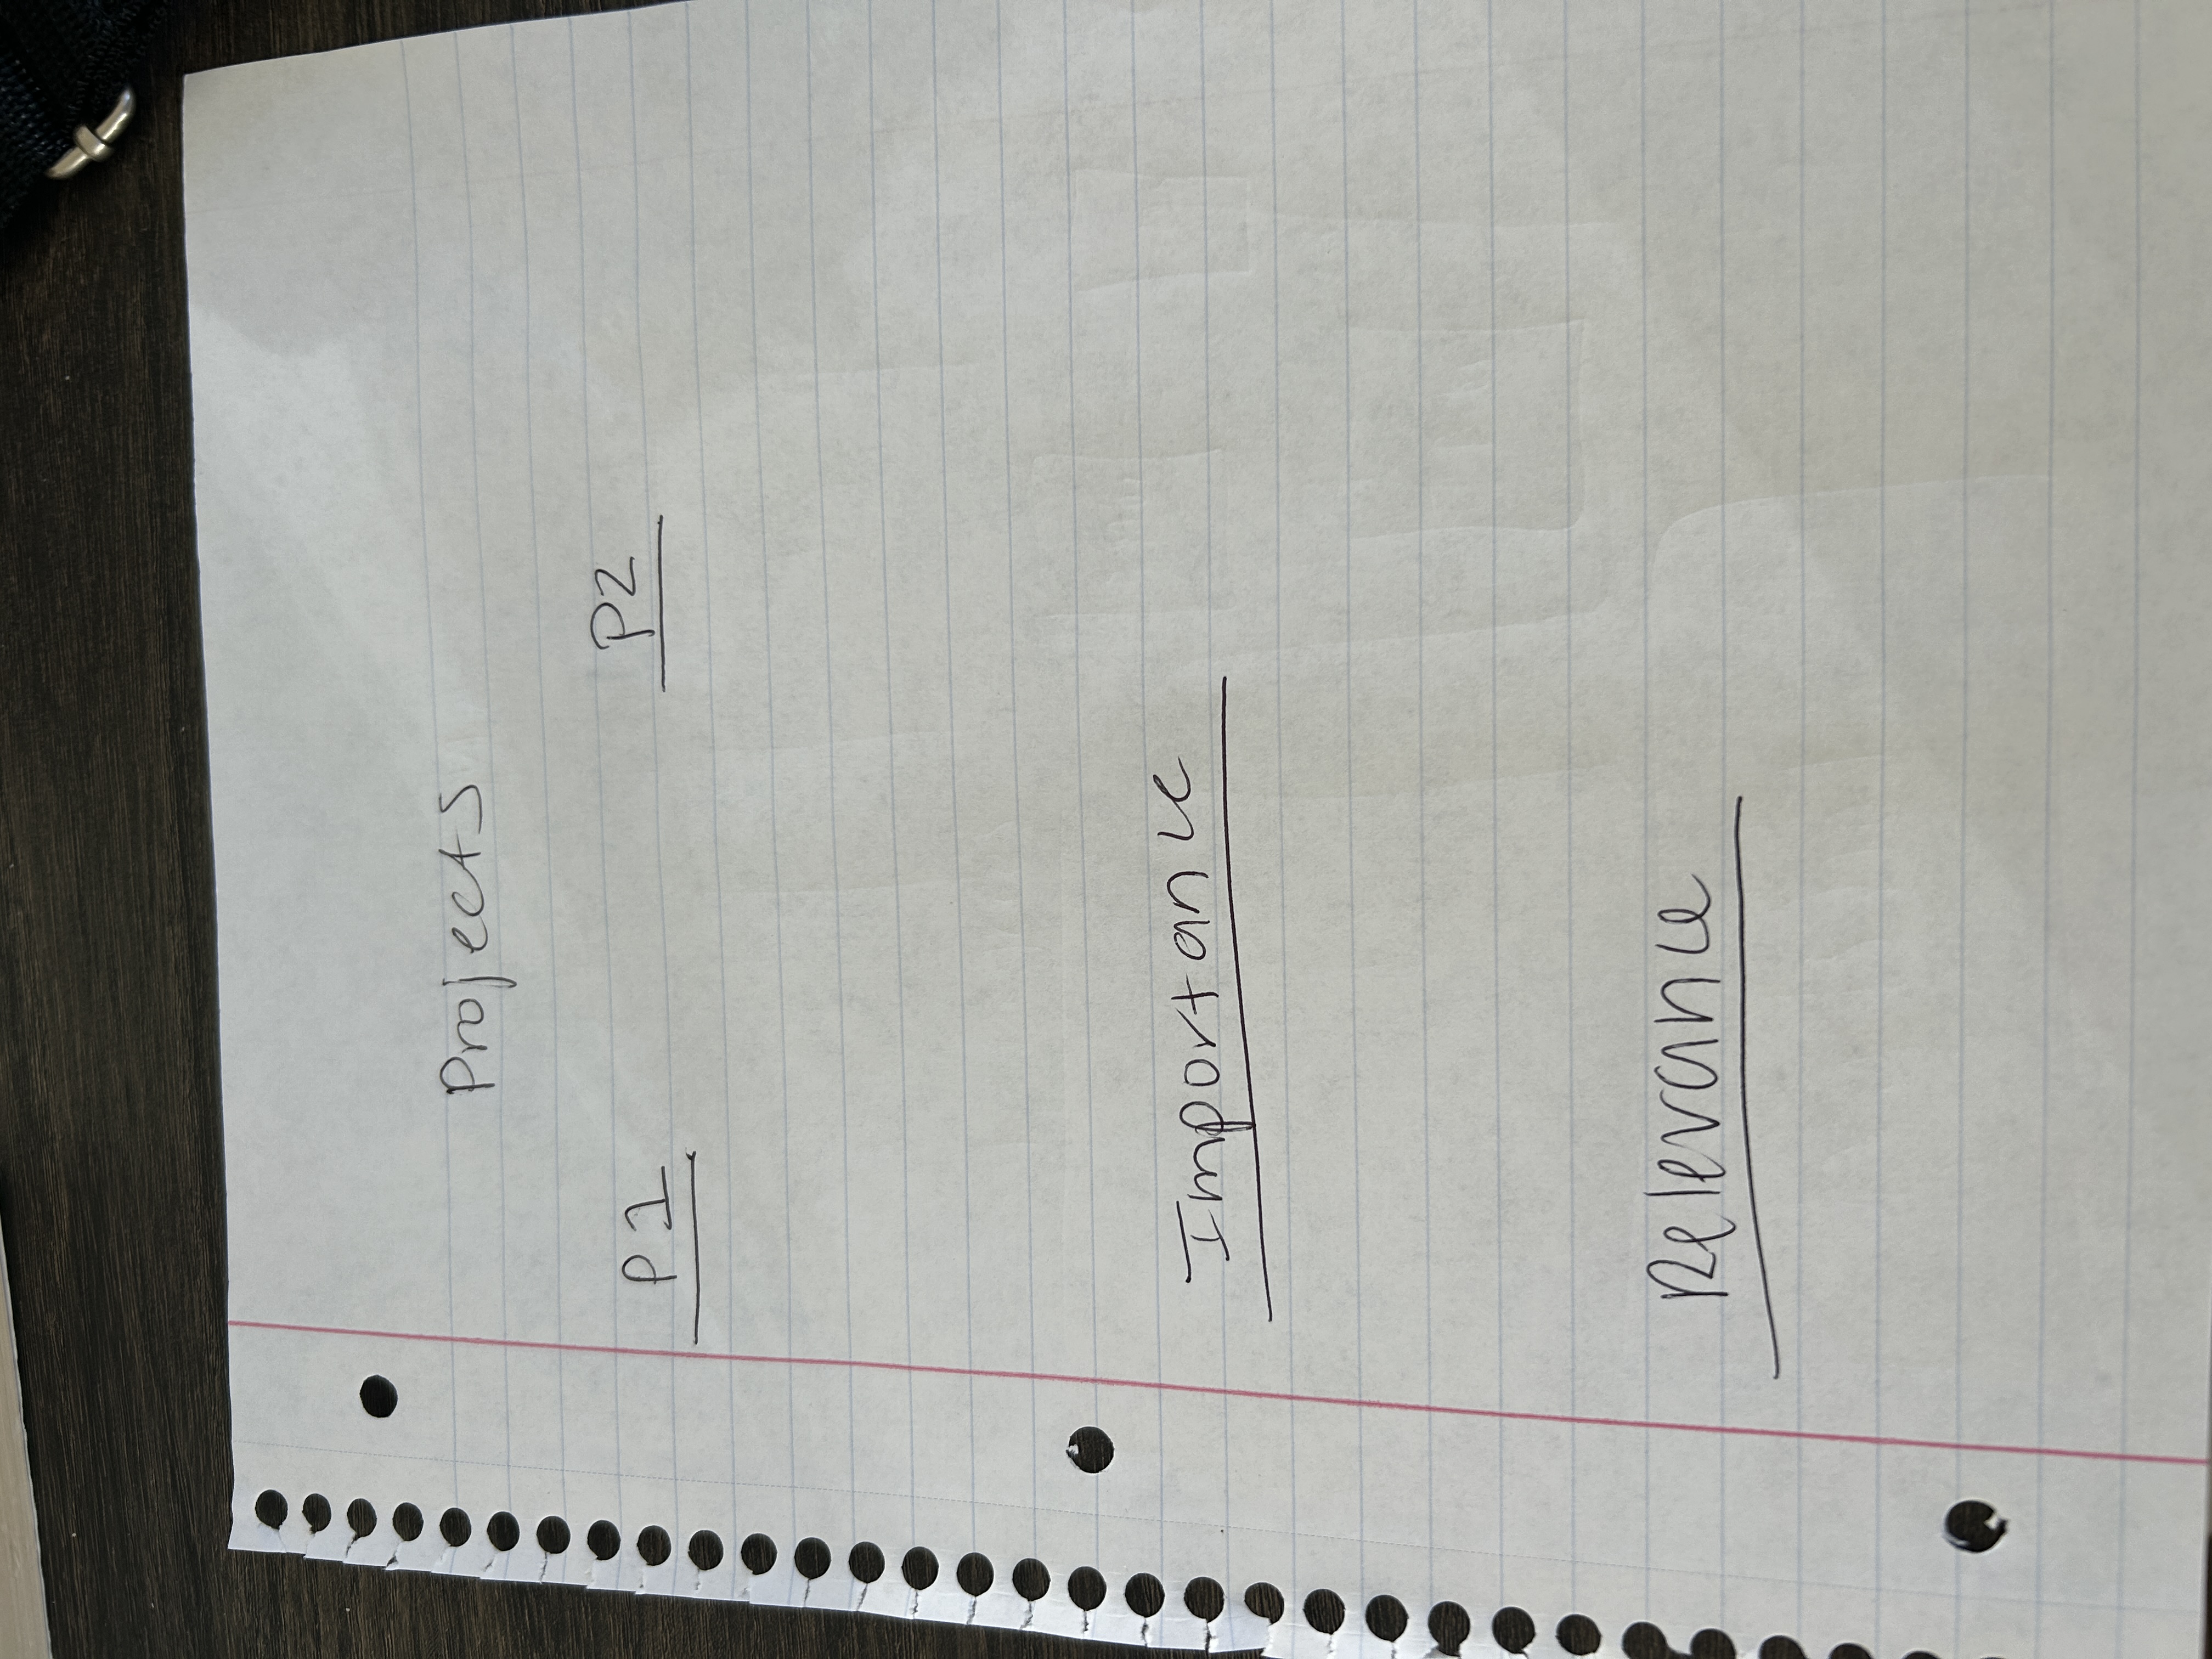 Projects
P1 P2
Importance
Relevance